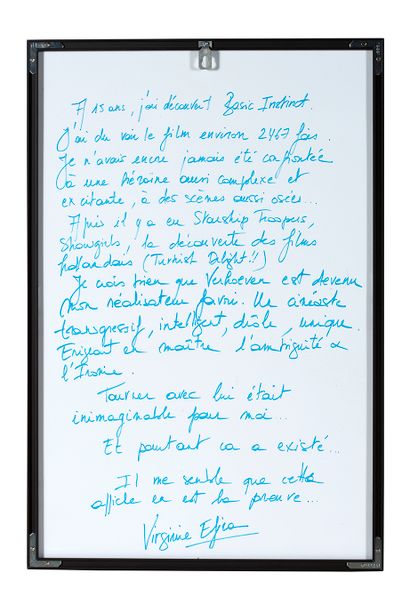 A 15 ans, j'ai découvert Basic Instinct.
J'ai du voir le film environ 2467 fois.
Je n'avais encore jamais été confrontée
à une héroïne aussi complexe et
excitante, à des scènes aussi osées...
Apuis il y a eu Starship Troopers,
Showgirls, la découverte des films
hollandais (Turkish Delight!!)
Je crois bien que Verhoeven est devenu
mon réalisateur favori. Un cinéaste
transgressif, intelligent, drôle, unique.
Erigeant en maître l'ambiguité &
l'Ironie.
Tourner avec lui était
inimaginable pour moi...
Et pourtant ca a existé...
Il me semble que cette
affiche en est la preuve...
Virginie Efira